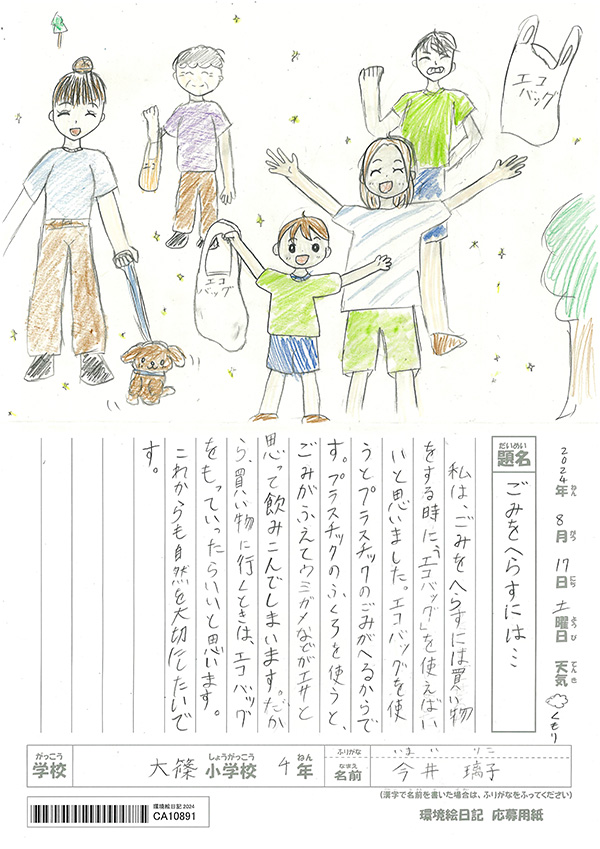 エコ
バッグ
エコ
バッグ
2024年 8月 17日 土曜日 天気 くもり
ねん がつ にち ようび てんき
だいめい
題名
ごみをへらすには…
私は、ごみをへらすには買い物
をする時に、「エコバッグ」を使えばい
いと思いました。エコバッグを使
うとプラスチックのごみがへるからで
す。プラスチックのふくろを使うと、
ごみがふえてウミガメなどがエサと
思って飲みこんでしまいます。だか
ら、買い物に行くときは、エコバッグ
をもっていったらいいと思います。
これからも自然を大切にしたいで
す。
がっこう しょうがっこう ねん
学校 大篠 小学校 4年
ふりがな いまい りこ
なまえ
名前 今井 璃子
(漢字で名前を書いた場合は、ふりがなをふってください)
環境絵日記2024
CA10891
環境絵日記 応募用紙